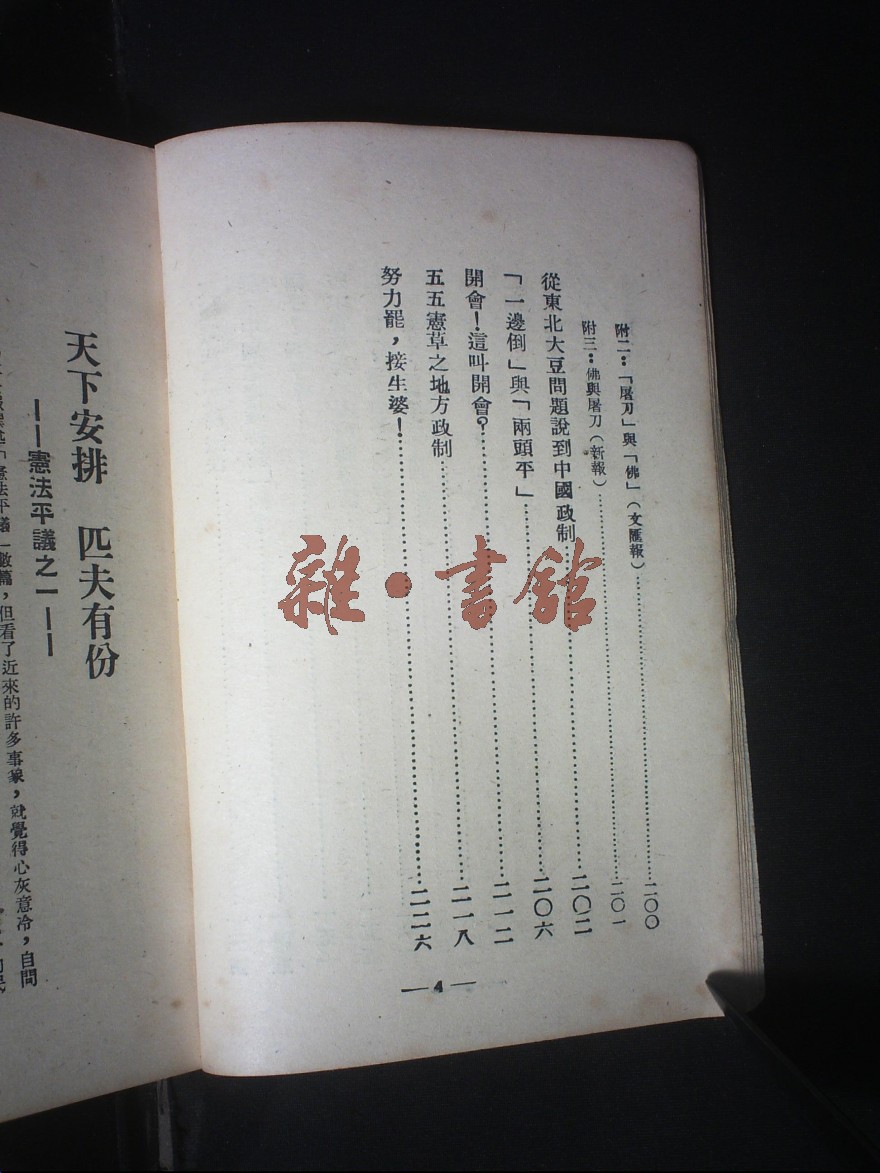 附二：「屠刀」與「佛」（文匯報）……二〇〇
附三：佛與屠刀（新報）……二〇一
從東北大豆問題說到中國政制……二〇二
「一邊倒」與「兩頭平」……二〇六
開會！這叫開會？……二一二
五五憲草之地方政制……二一八
努力罷，接生婆！……二二六
—4—
天下安排　匹夫有份
——憲法平議之一——
「憲法平議」數篇，但看了近來的許多事象，就覺得心灰意冷，自問
雜·書館